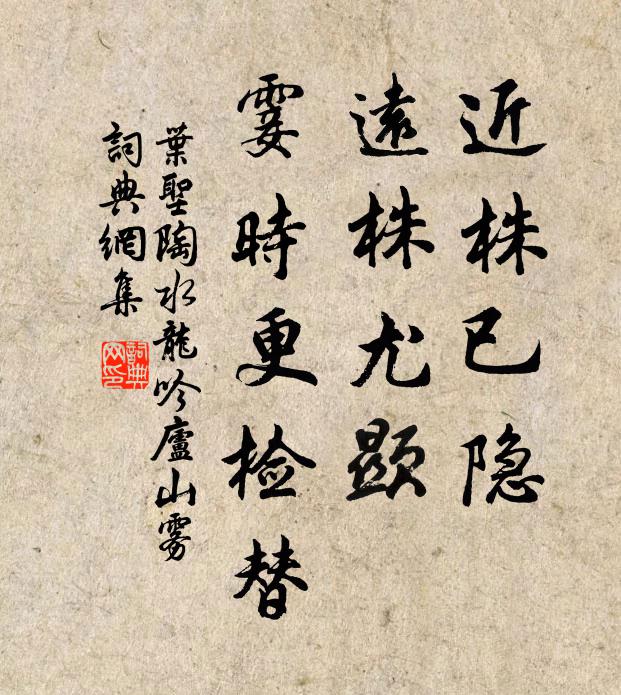 近株已隐
遠株尤顕
霎時更检替
葉聖陶水龍吟廬山雾
詞典網集
詞典网印